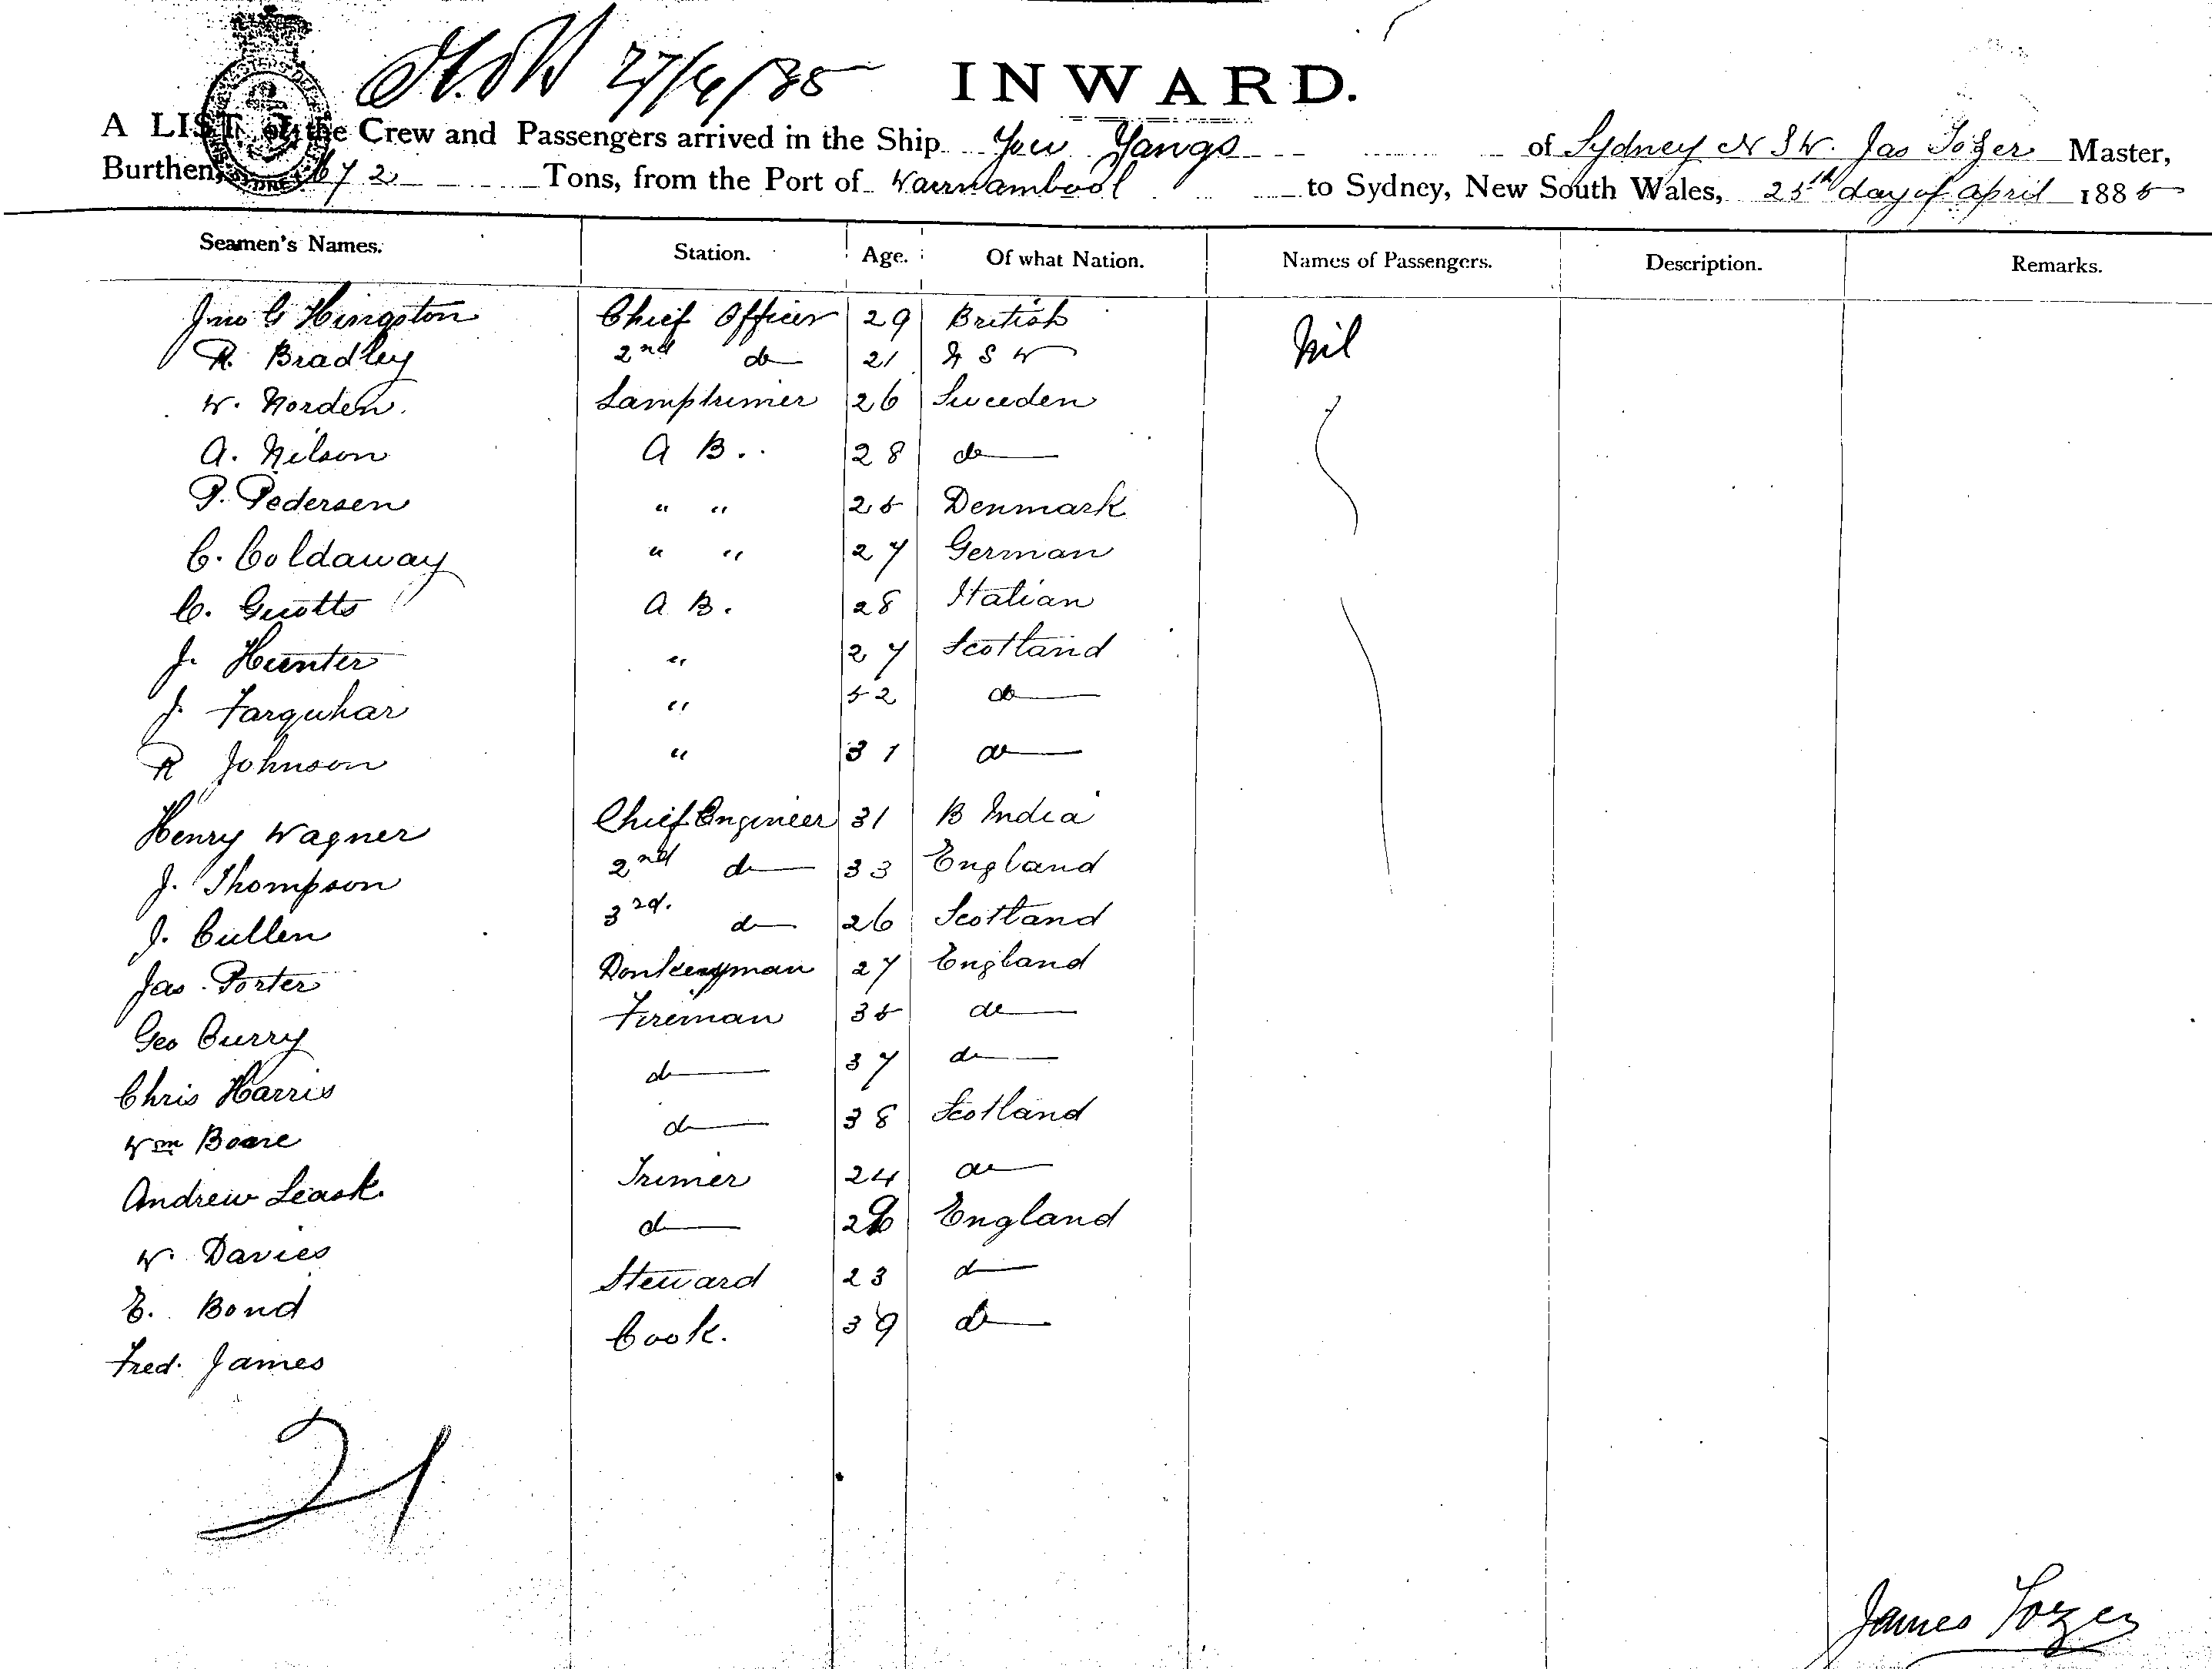 27/4/85 INWARD.
A LIST of the Crew and Passengers arrived in the Ship You Yangs of Sydney N S W. Jas Tozer Master,
Burthen, 672 Tons, from the Port of Warrnambool to Sydney, New South Wales, 25th day of April 1885
Seamen's Names. Station. Age. Of what Nation. Names of Passengers. Description. Remarks.
Jno G Hingston Chief Officer 29 British Nil
R. Bradley 2nd do 21 N S W
W. Norden. Lamptrimer 26 Sweeden
A. Nilson A B. 28 do
P. Pedersen " " 25 Denmark
C. Coldaway " " 27 German
C. Guotts A B. 28 Italian
J. Hunter " 27 Scotland
J. Farquhar " 52 do
R Johnson " 31 do
Henry Wagner Chief Engineer 31 B India
J. Thompson 2nd do 33 England
J. Cullen 3rd. do 26 Scotland
Jas. Porter Donkeyman 27 England
Geo Curry Fireman 35 do
Chris Harris do 37 do
Wm Boare do 38 Scotland
Andrew Leask. Trimer 24 do
W. Davies do England
E. Bond Steward 23 do
Fred. James Cook. 39 do
21
James Tozer